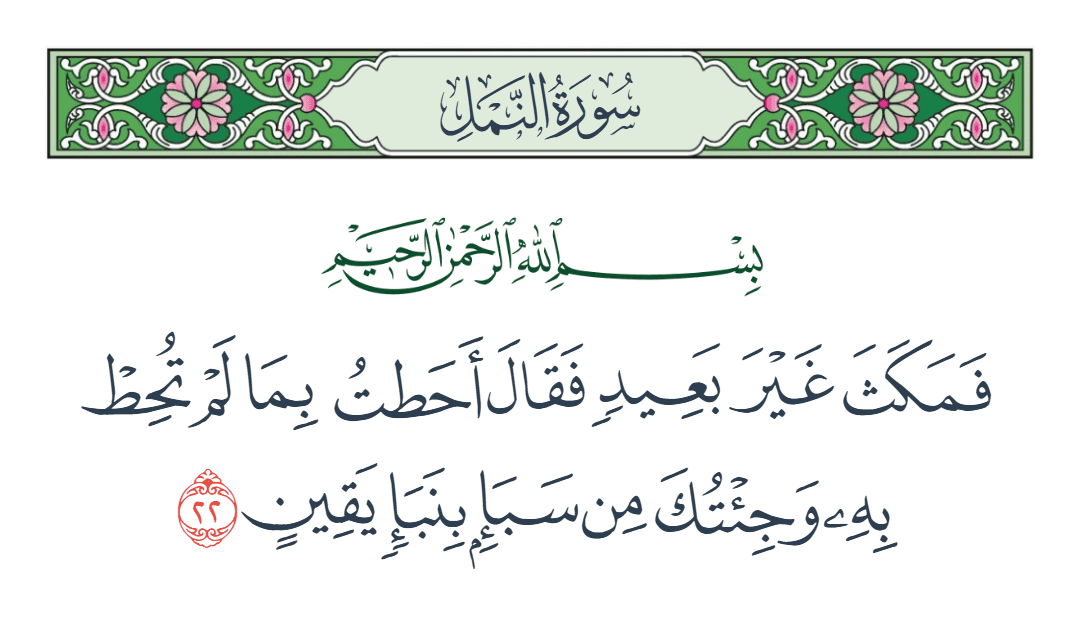 سُورَةُ النَّمْلِ
بِسْمِ ٱللَّهِ ٱلرَّحْمَٰنِ ٱلرَّحِيمِ
فَمَكَثَ غَيْرَ بَعِيدٍ فَقَالَ أَحَطتُ بِمَا لَمْ تُحِطْ
بِهِۦ وَجِئْتُكَ مِن سَبَإٍۭ بِنَبَإٍ يَقِينٍ ٢٢